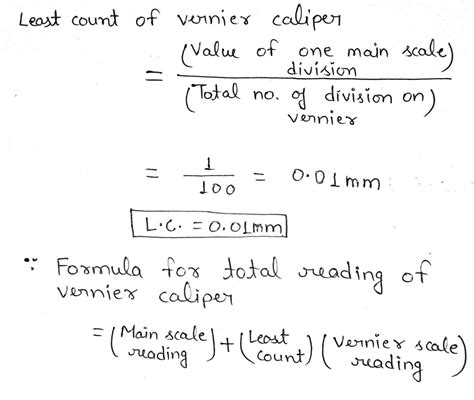 Least count of vernier caliper
= (Value of one main scale) division / (Total no. of division on) vernier
= 1/100 = 0.01mm
L.C. = 0.01mm
∵ Formula for total reading of
vernier caliper
= (Main scale reading) + (Least count) (Vernier scale reading)